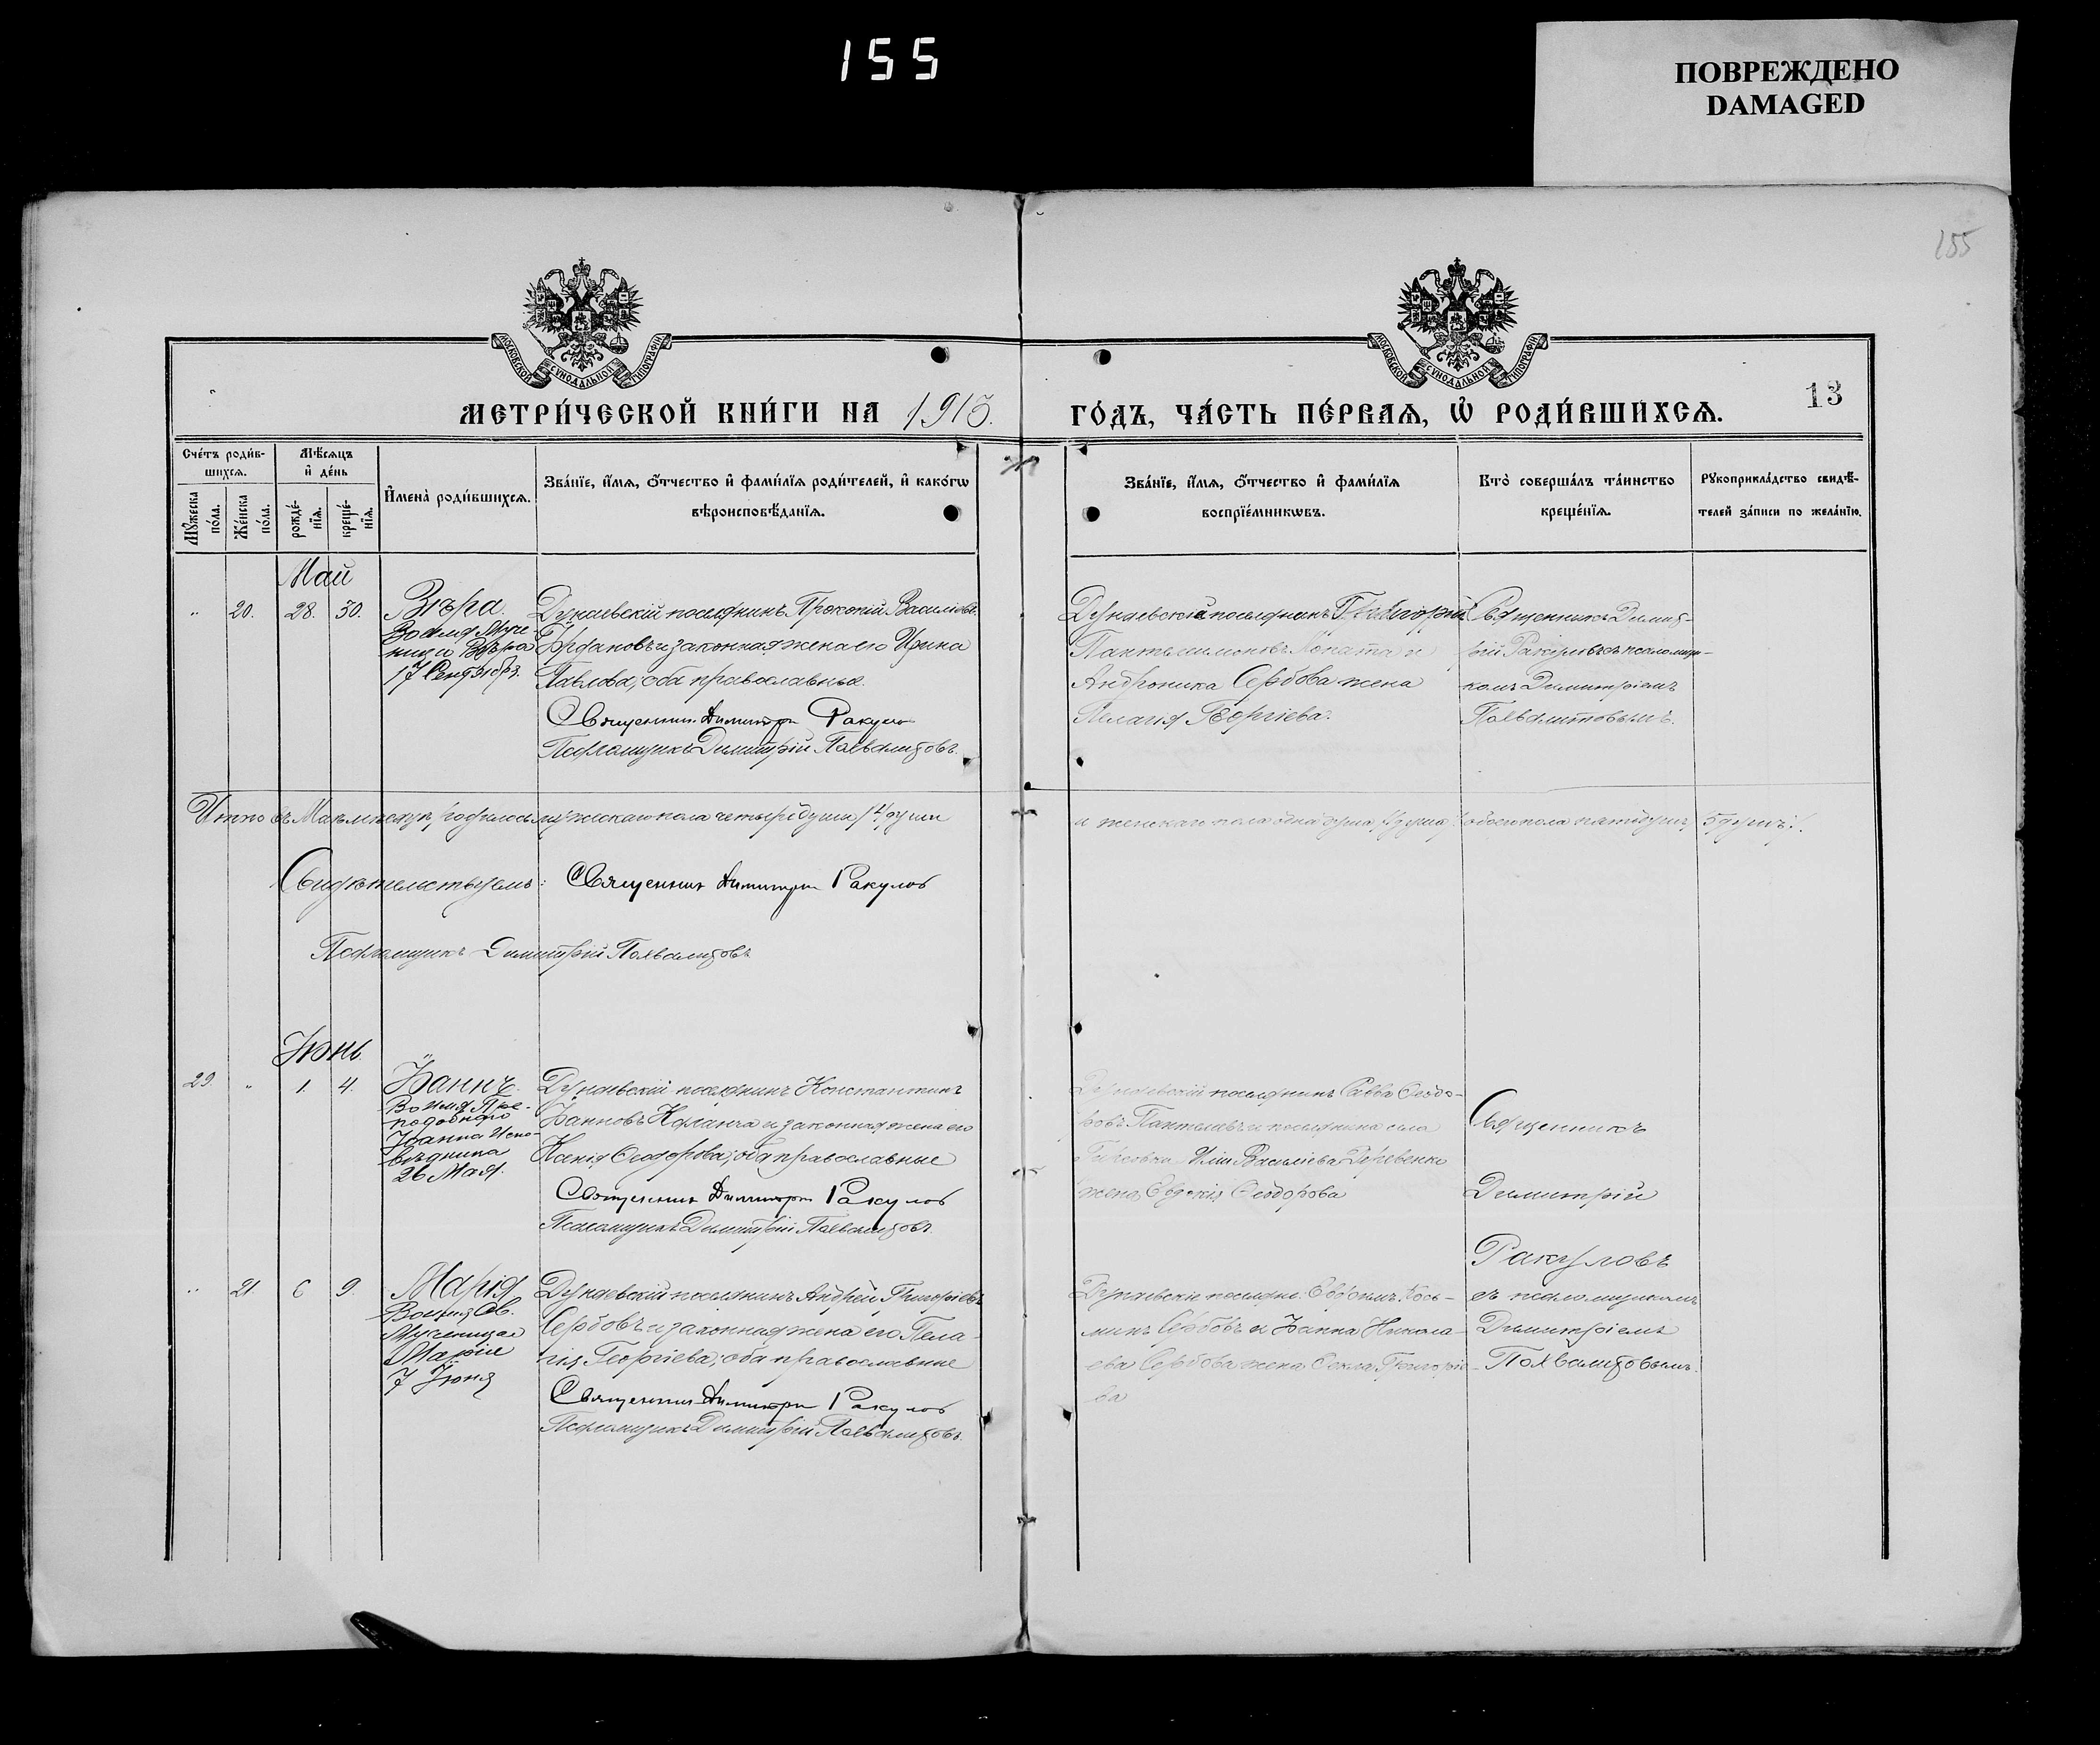 155
ПОВРЕЖДЕНО
DAMAGED
155
МОСКОВСКОЙ СѴНОДАЛЬНОЙ ТИПОГРАФІИ
МОСКОВСКОЙ СѴНОДАЛЬНОЙ ТИПОГРАФІИ
МЕТРИ́ЧЕСКОЙ КНИ́ГИ НА 1913.
ГО́ДЪ, ЧА́СТЬ ПЕ́РВАѦ, Ѡ҆ РОДИ́ВШИХСѦ.
13
Сче́тъ роди́в-
шихсѧ.
Мꙋ́жеска по́ла.
Же́нска по́ла.
Мѣ́сѧцъ
и҆ де́нь
рожде́-нїѧ.
креще́-нїѧ.
И҆мена̀ роди́вшихсѧ.
Зва́нїе, и҆́мѧ, ѻ҆́тчество и҆ фами́лїѧ роди́телей, и҆ како́гѡ
вѣроисповѣ́данїѧ.
Зва́нїе, и҆́мѧ, ѻ҆́тчество и҆ фами́лїѧ
воспрїе́мникѡвъ.
Кто̀ соверша́лъ та́инство
креще́нїѧ.
Рꙋкоприкла́дство свидѣ́-
телей за́писи по жела́нїю.
Май
20. 28. 30. Вѣра.
Во имя Муче
ницы Вѣра
17 Сентября.
Дунаевскій поселянинъ Прокопій Васильевъ
и законная жена его Ирина
Павлова; оба православные.
Священникъ Димитрій Ракулов
Псаломщикъ Димитрій Похвалитовъ.
Дунаевскій поселянинъ Григорій
Пантелимоновъ Лопата и
Андроника Сербова жена
Пелагія Георгіева.
Священникъ Димит-
рій Ракуловъ съ псаломщи-
комъ Димитріемъ
Похвалитовымъ.
Итого въ Маѣ мѣсяцѣ родилось мужескаго пола четыре души /4 души
и женскаго пола одна душа /1 душа/ обоего пола пять душъ /5 душъ/.
Свидѣтельствуемъ: Священник Димитрій Ракулов
Псаломщикъ Димитрій Похвалитовъ
Іюнь.
29. 1. 4. Іоаннъ.
Во имя Пре-
подобнаго
Іоанна Испо-
вѣдника
26 Мая.
Дунаевскій поселянинъ Константинъ
Іоанновъ и законная жена его
Ксенія Ѳеодорова; оба православные
Священник Димитрій Ракулов
Псаломщикъ Димитрій Похвалитовъ.
Дунаевскій поселянинъ Савва Ѳеодо-
ровъ и поселянина села
Иліи Васильева
жена Евдокія Ѳеодорова
Священникъ
Димитрій
Ракуловъ
съ псаломщикомъ
Димитріемъ
Похвалитовымъ.
21 6 9. Марія
Во имя Св.
Мученицы
Маріи
7 Іюня
Дунаевскій поселянинъ Андрей Григорьевъ
Сербовъ и законная жена его Пела-
гія Георгіева; оба православные
Священник Димитрій Ракулов
Псаломщикъ Димитрій Похвалитовъ.
Дунаевскіе поселяне: Евѳимъ Кось-
минъ Сербовъ и Іоанна Никола-
ева Сербова жена Ѳекла Григорье-
ва